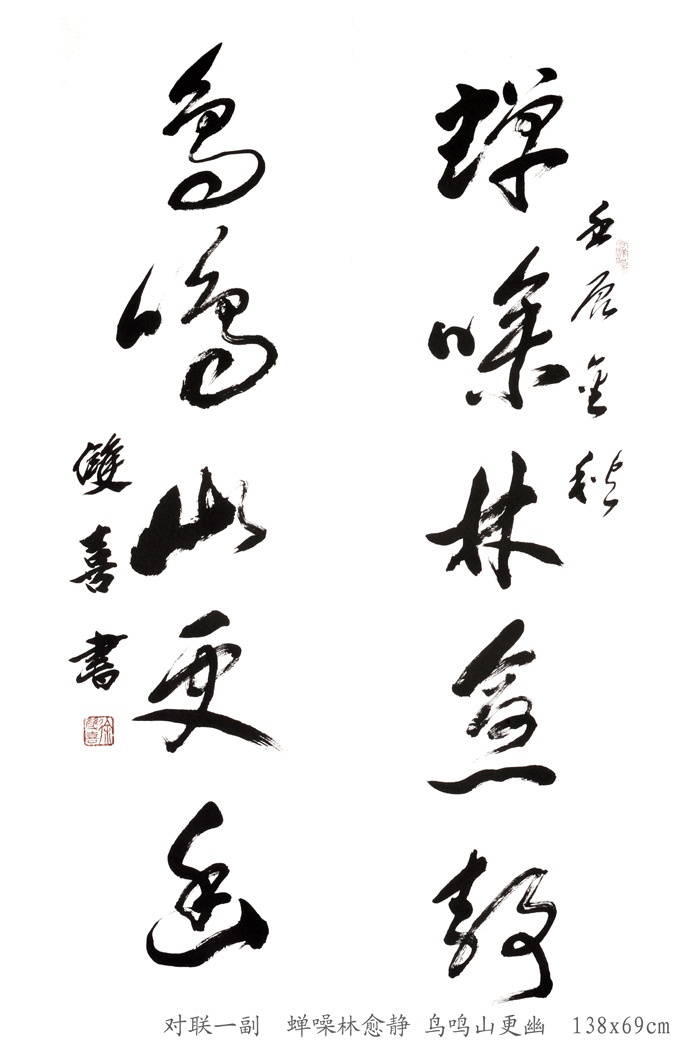 蟬噪林愈静
壬辰金秋
鳥鳴山更幽
雙喜書
徐雙喜
对联一副 蝉噪林愈静 鸟鸣山更幽 138x69cm